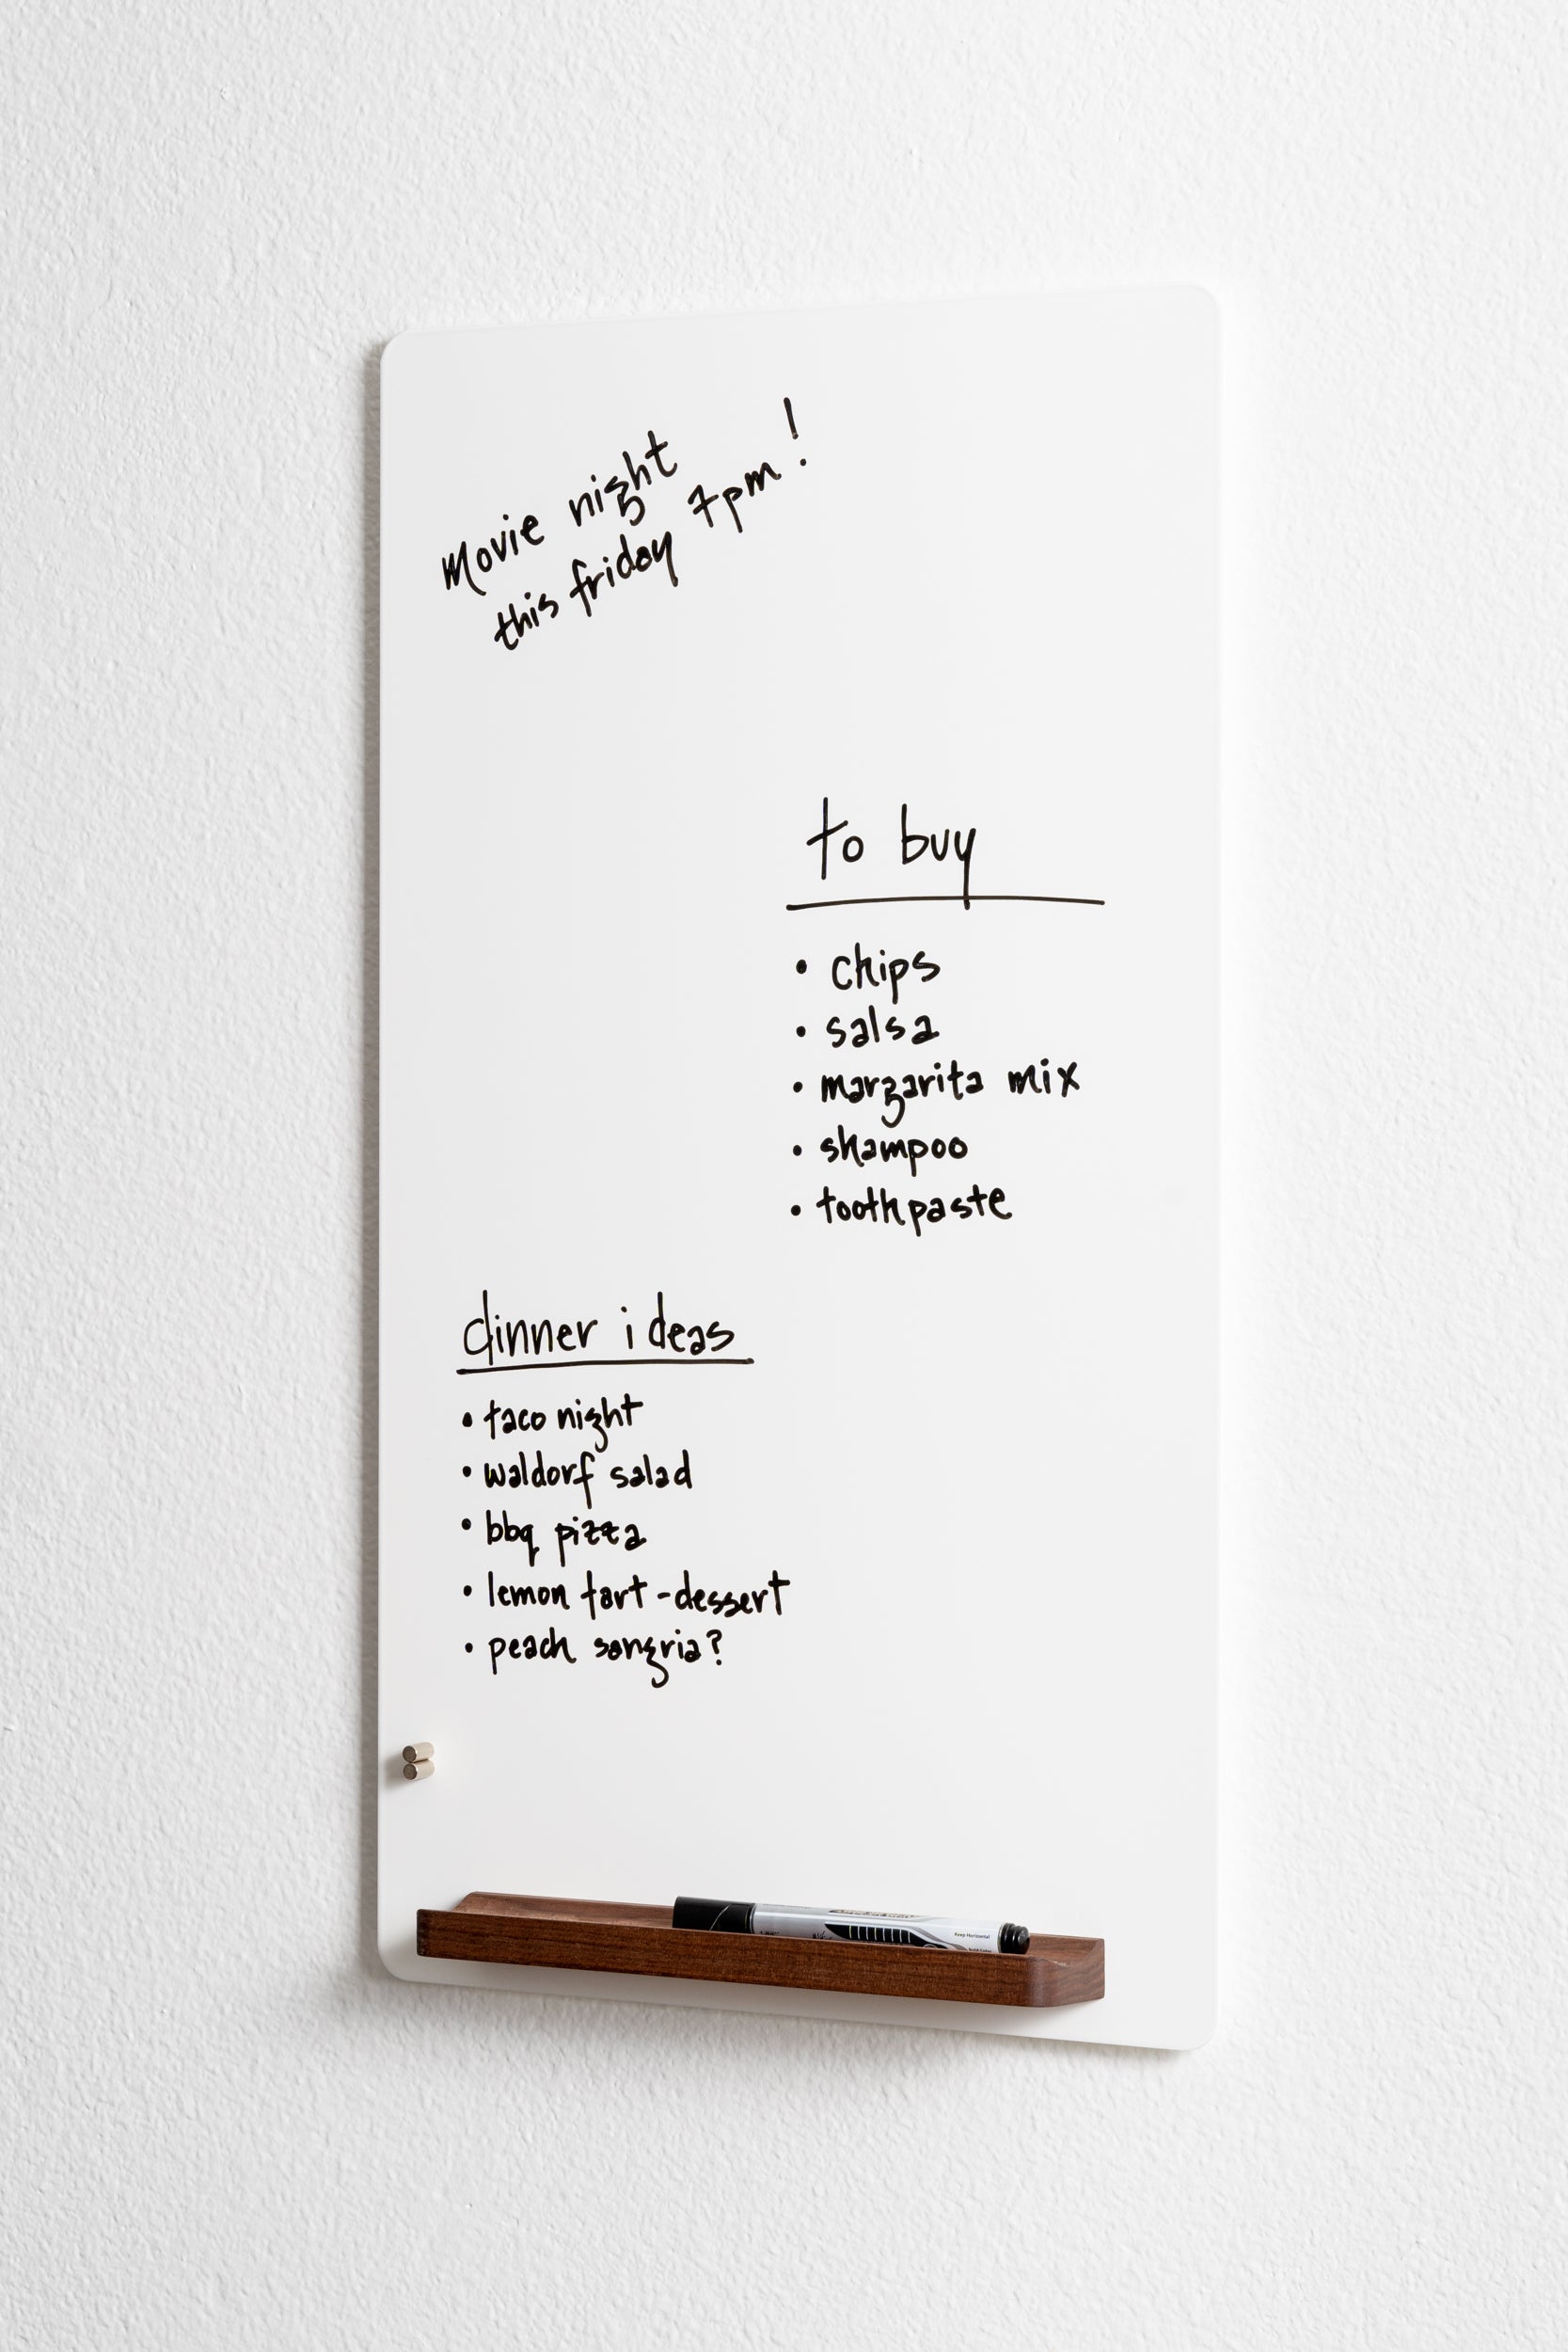 Movie night
this friday 7pm!
to buy
• chips
• salsa
• margarita mix
• shampoo
• toothpaste
dinner ideas
• taco night
• waldorf salad
• bbq pizza
• lemon tart - dessert
• peach sangria?
Keep Horizontal